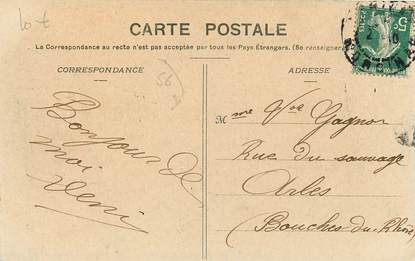 10 €
CARTE POSTALE
La Correspondance au recto n'est pas acceptée par tous les Pays Étrangers. (Se renseigner
CORRESPONDANCE
ADRESSE
56
5c
Mme Vve Gagnor
Rue du sauvage
Arles
Bouches du Rhône
Bonjour de
moi